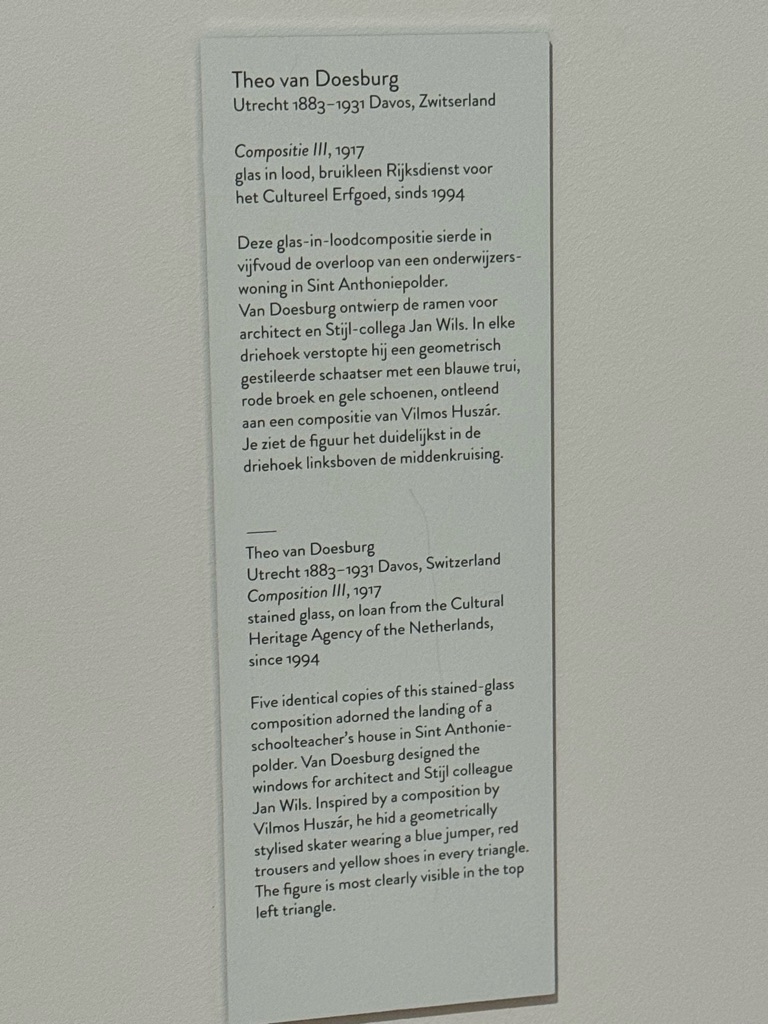 Theo van Doesburg
Utrecht 1883–1931 Davos, Zwitserland
Compositie III, 1917
glas in lood, bruikleen Rijksdienst voor
het Cultureel Erfgoed, sinds 1994
Deze glas-in-loodcompositie sierde in
vijfvoud de overloop van een onderwijzers-
woning in Sint Anthoniepolder.
Van Doesburg ontwierp de ramen voor
architect en Stijl-collega Jan Wils. In elke
driehoek verstopte hij een geometrisch
gestileerde schaatser met een blauwe trui,
rode broek en gele schoenen, ontleend
aan een compositie van Vilmos Huszár.
Je ziet de figuur het duidelijkst in de
driehoek linksboven de middenkruising.
Theo van Doesburg
Utrecht 1883–1931 Davos, Switzerland
Composition III, 1917
stained glass, on loan from the Cultural
Heritage Agency of the Netherlands,
since 1994
Five identical copies of this stained-glass
composition adorned the landing of a
schoolteacher's house in Sint Anthonie-
polder. Van Doesburg designed the
windows for architect and Stijl colleague
Jan Wils. Inspired by a composition by
Vilmos Huszár, he hid a geometrically
stylised skater wearing a blue jumper, red
trousers and yellow shoes in every triangle.
The figure is most clearly visible in the top
left triangle.